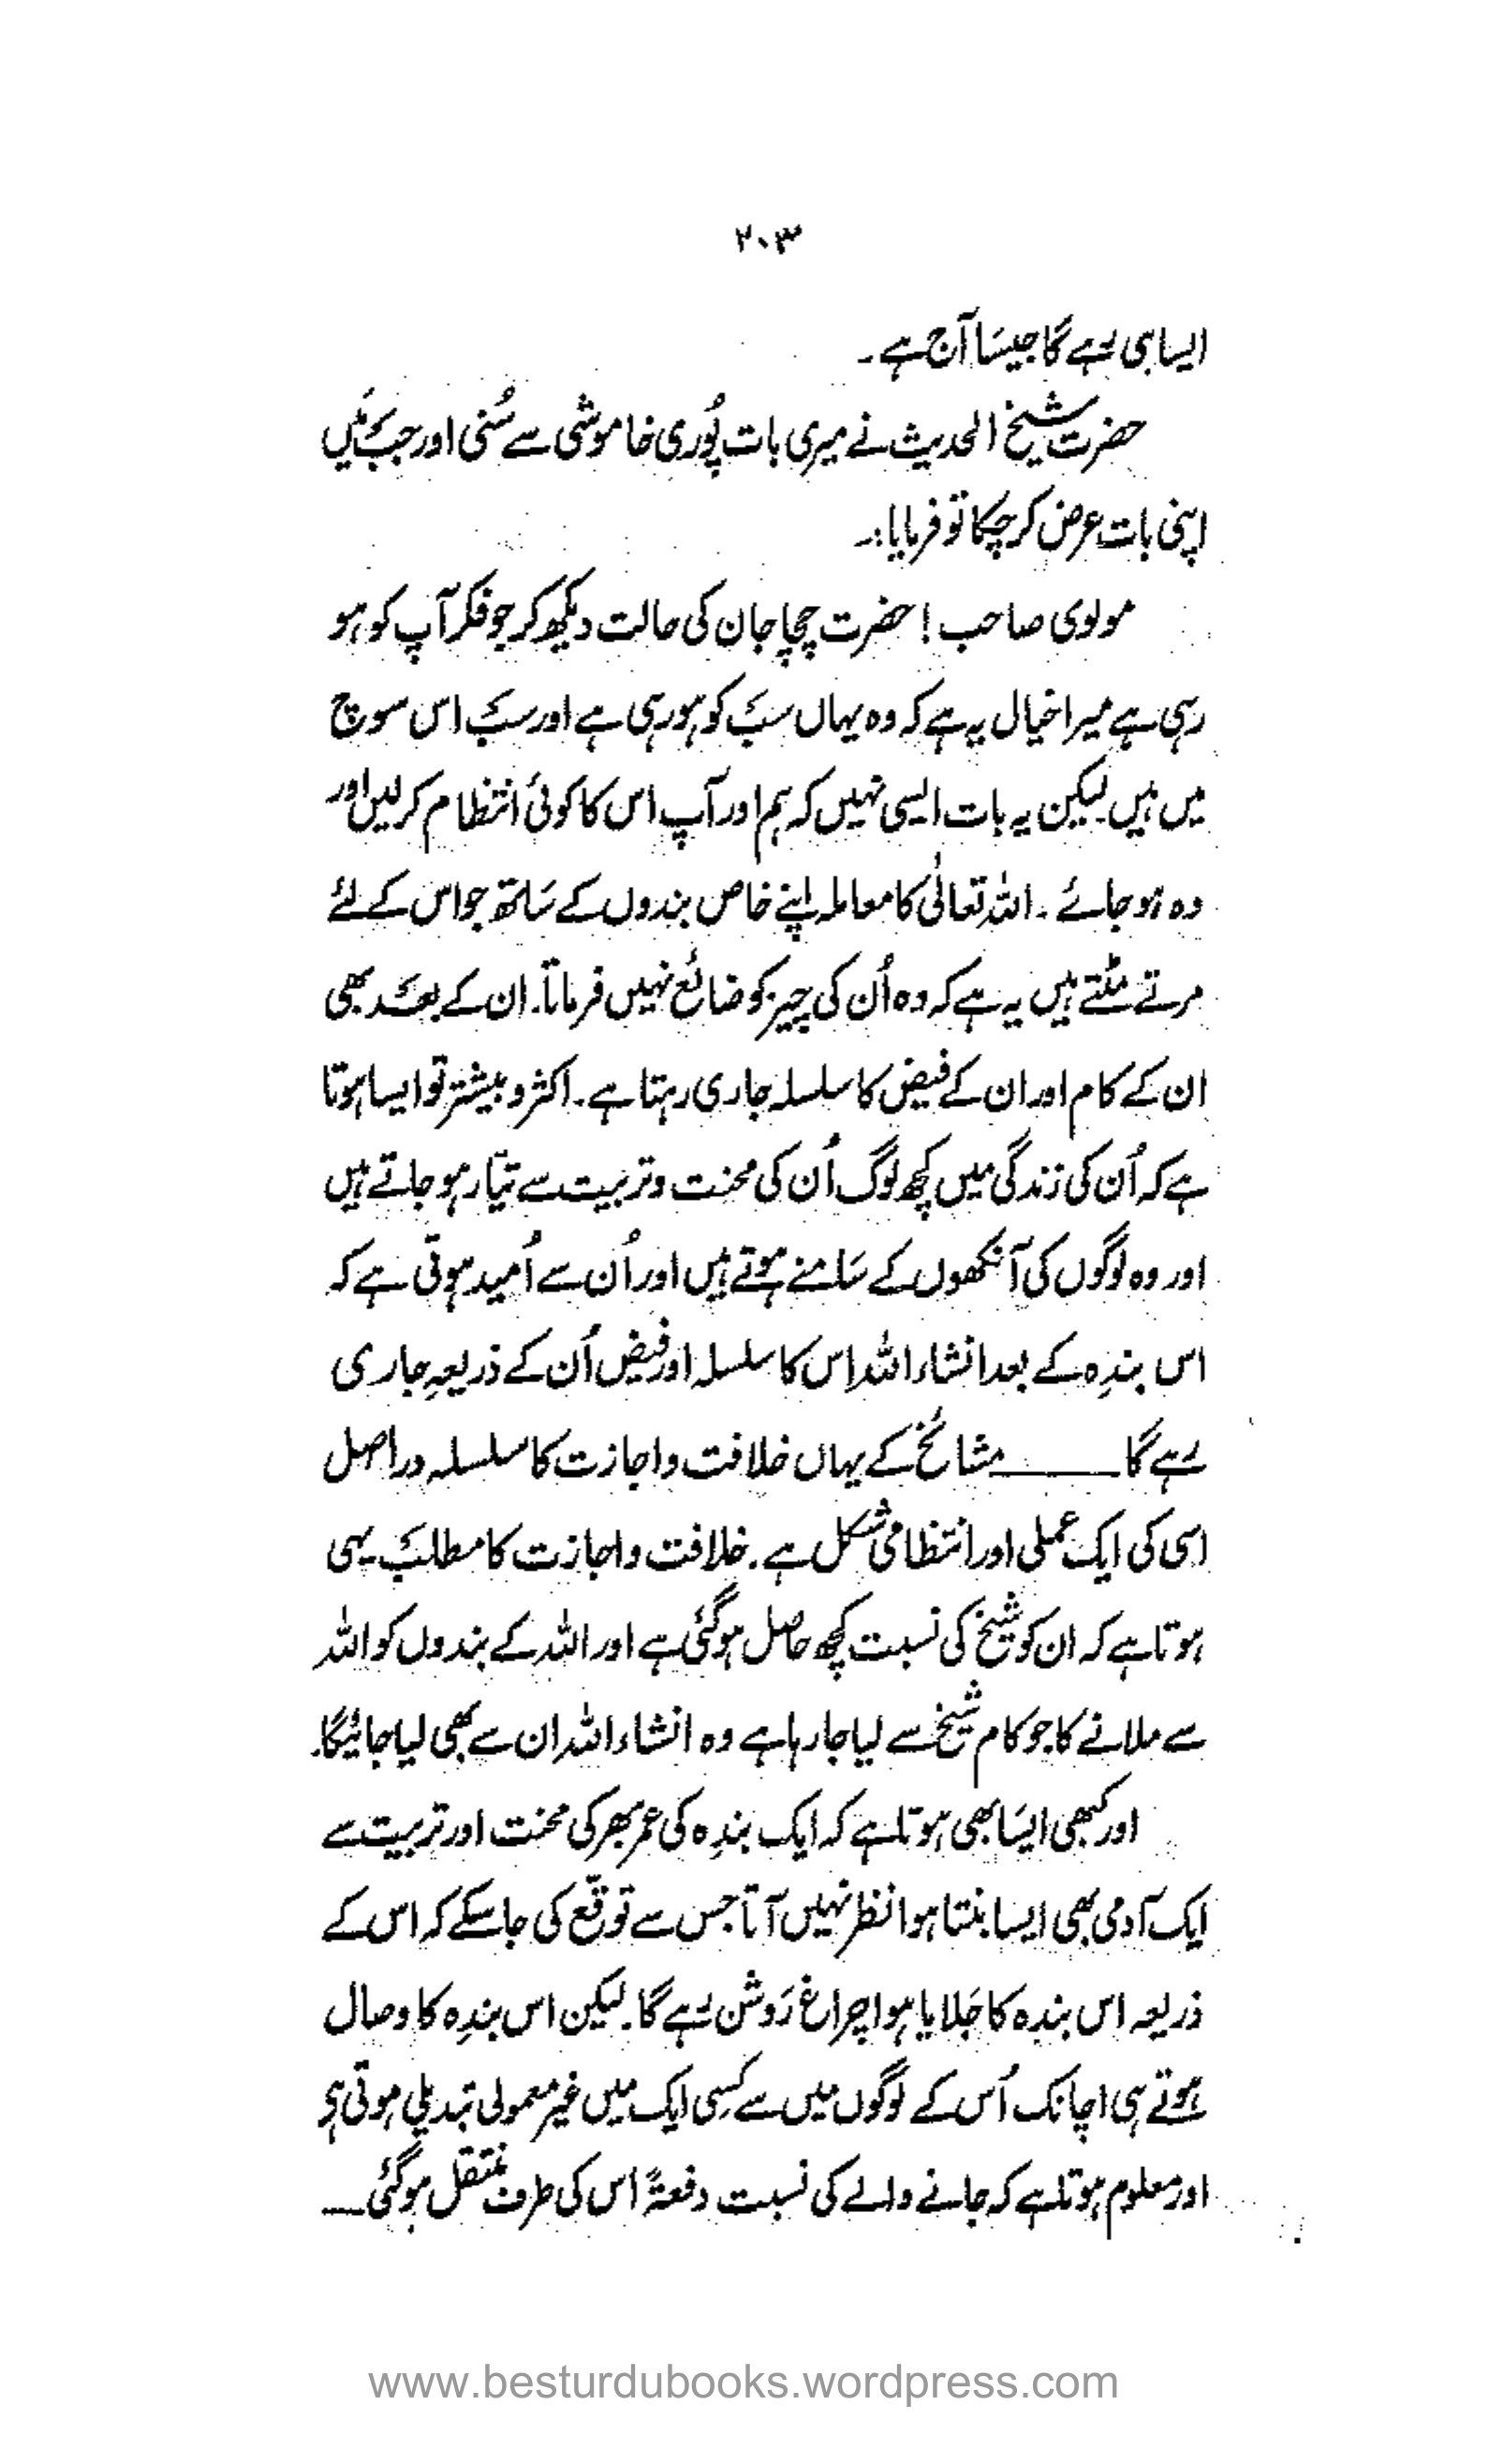 ۲۰۳
ایسا ہی رہے گا جیسَا آج ہے۔
حضرت شیخ الحدیث نے میری بات پُوری خاموشی سے سُنی اور جب مَیں
اپنی بات عرض کر چکا تو فرمایا:۔
مولوی صاحب! حضرت چچا جان کی حالت دیکھ کر جو فکر آپ کو ہو
رہی ہے میرا خیال یہ ہے کہ وہ یہاں سبَ کو ہو رہی ہے اور سبَ اس سوچ
میں ہیں لیکن یہ بات ایسی نہیں کہ ہم اور آپ اس کا کوئی انتظام کر لیں اور
وہ ہو جائے۔ اللہ تعالٰی کا معاملہ اپنے خاص بندوں کے سَاتھ جو اس کے لئے
مرتے مٹتے ہیں یہ ہے کہ وہ اُن کی چیز کو ضائع نہیں فرماتا۔ ان کے بعَد بھی
ان کے کام اور ان کے فیض کا سلسلہ جاری رہتا ہے۔ اکثر و بیشتر تو ایسا ہوتا
ہے کہ اُن کی زندگی میں کچھ لوگ اُن کی محنت و تربیت سے تیّار ہو جاتے ہیں
اور وہ لوگوں کی آنکھوں کے سَامنے ہوتے ہیں اور اُن سے اُمید ہوتی ہے کہ
اس بندہ کے بعد انشاء اللہ اس کا سلسلہ اور فیض اُن کے ذریعہ جاری
رہے گا ــــــــ مشائخ کے یہاں خلافت و اجازت کا سلسلہ دراصل
اسی کی ایک عملی اور انتظامی شکل ہے۔ خلافت و اجازت کا مطلبَ یہی
ہوتا ہے کہ ان کو شیخ کی نسبت کچھ حاصل ہو گئی ہے اور اللہ کے بندوں کو اللہ
سے ملانے کا جو کام شیخ سے لیا جا رہا ہے وہ انشاء اللہ ان سے بھی لیا جائیگا۔
اور کبھی ایسَا بھی ہوتا ہے کہ ایک بندہ کی عمر بھر کی محنت اور تربیت سے
ایک آدمی بھی ایسا بنتا ہوا نظر نہیں آتا جس سے توقّع کی جا سکے کہ اس کے
ذریعہ اس بندہ کا جَلایا ہوا چراغ رَوشن رہے گا۔ لیکن اس بندہ کا وصال
ہوتے ہی اچانک اُس کے لوگوں میں سے کسِی ایک میں غیر معمولی تبدیلی ہوتی ہی
اور معلوم ہوتا ہے کہ جانے والے کی نسبت دفعۃً اس کی طرف منتقل ہو گئی ــــ
www.besturdubooks.wordpress.com